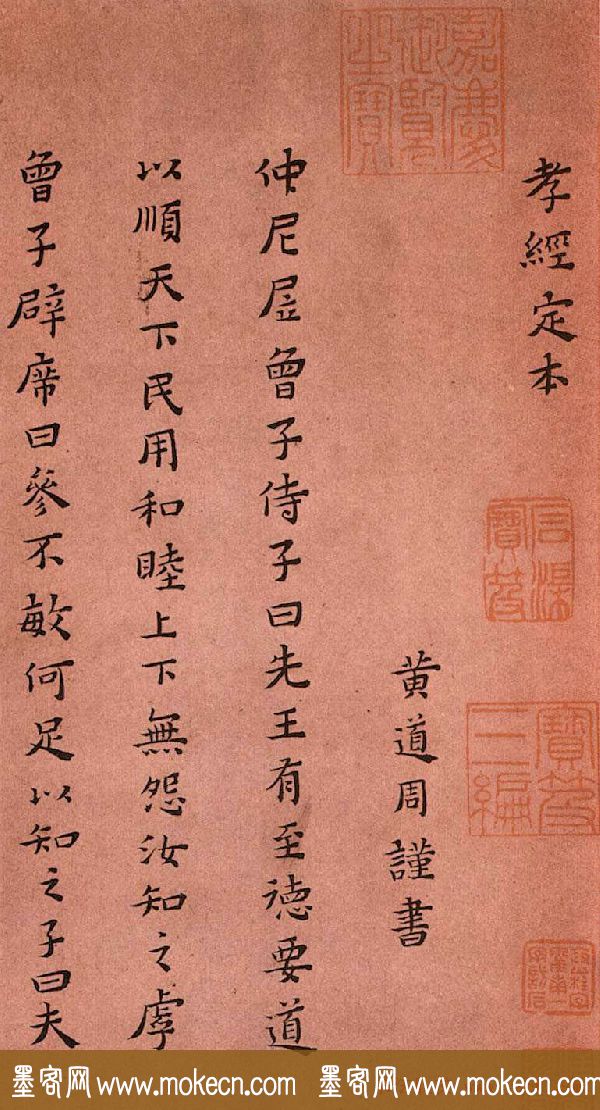 孝經定本
黄道周謹書
仲尼凥曾子侍子曰先王有至徳要道
以順天下民用和睦上下無怨汝知之虖
曾子辟席曰參不敏何足以知之子曰夫
嘉慶御覽之寶
石渠寶笈
寶笈三編
墨客网 www.mokecn.com 墨客网 www.mokecn.com